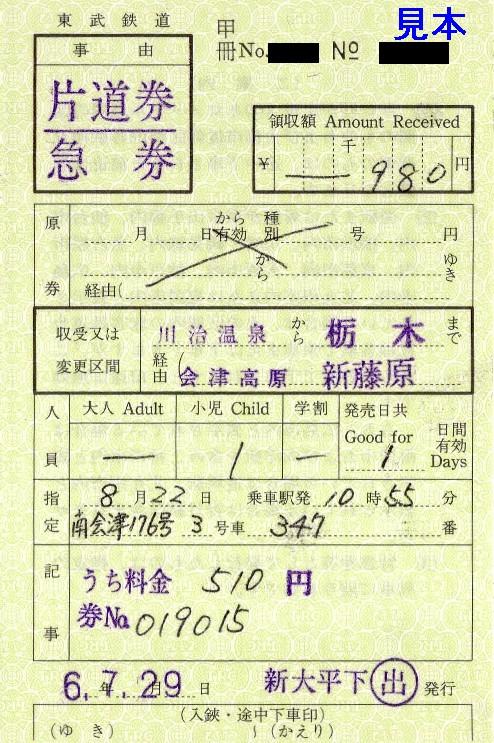 見本
東武鉄道
甲
冊No. No
事由
片道券
急券
領収額 Amount Received
¥ 千 980 円
原券
月 日有効 から 種別 号 円
から ゆき
経由(
収受又は変更区間
川治温泉 から 栃木 まで
経由( 会津高原 新藤原
人員
大人 Adult 小児 Child 学割 発売日共 Good for 日間有効 Days
1 1
指定
8月22日 乗車駅発 10時55分
南会津176号 3号車 347 番
記事
うち料金 510 円
券No. 019015
6.年7.月29日 新大平下 出 発行
(入鋏・途中下車印)
(ゆき) ~(かえり)